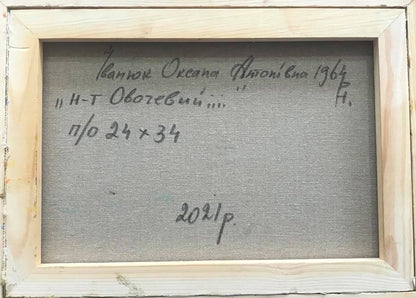 Іванюк Оксана Антонівна 1964 р.
„Н-т Овочевий..." Н.
п/о 24 х 34
2021 р.